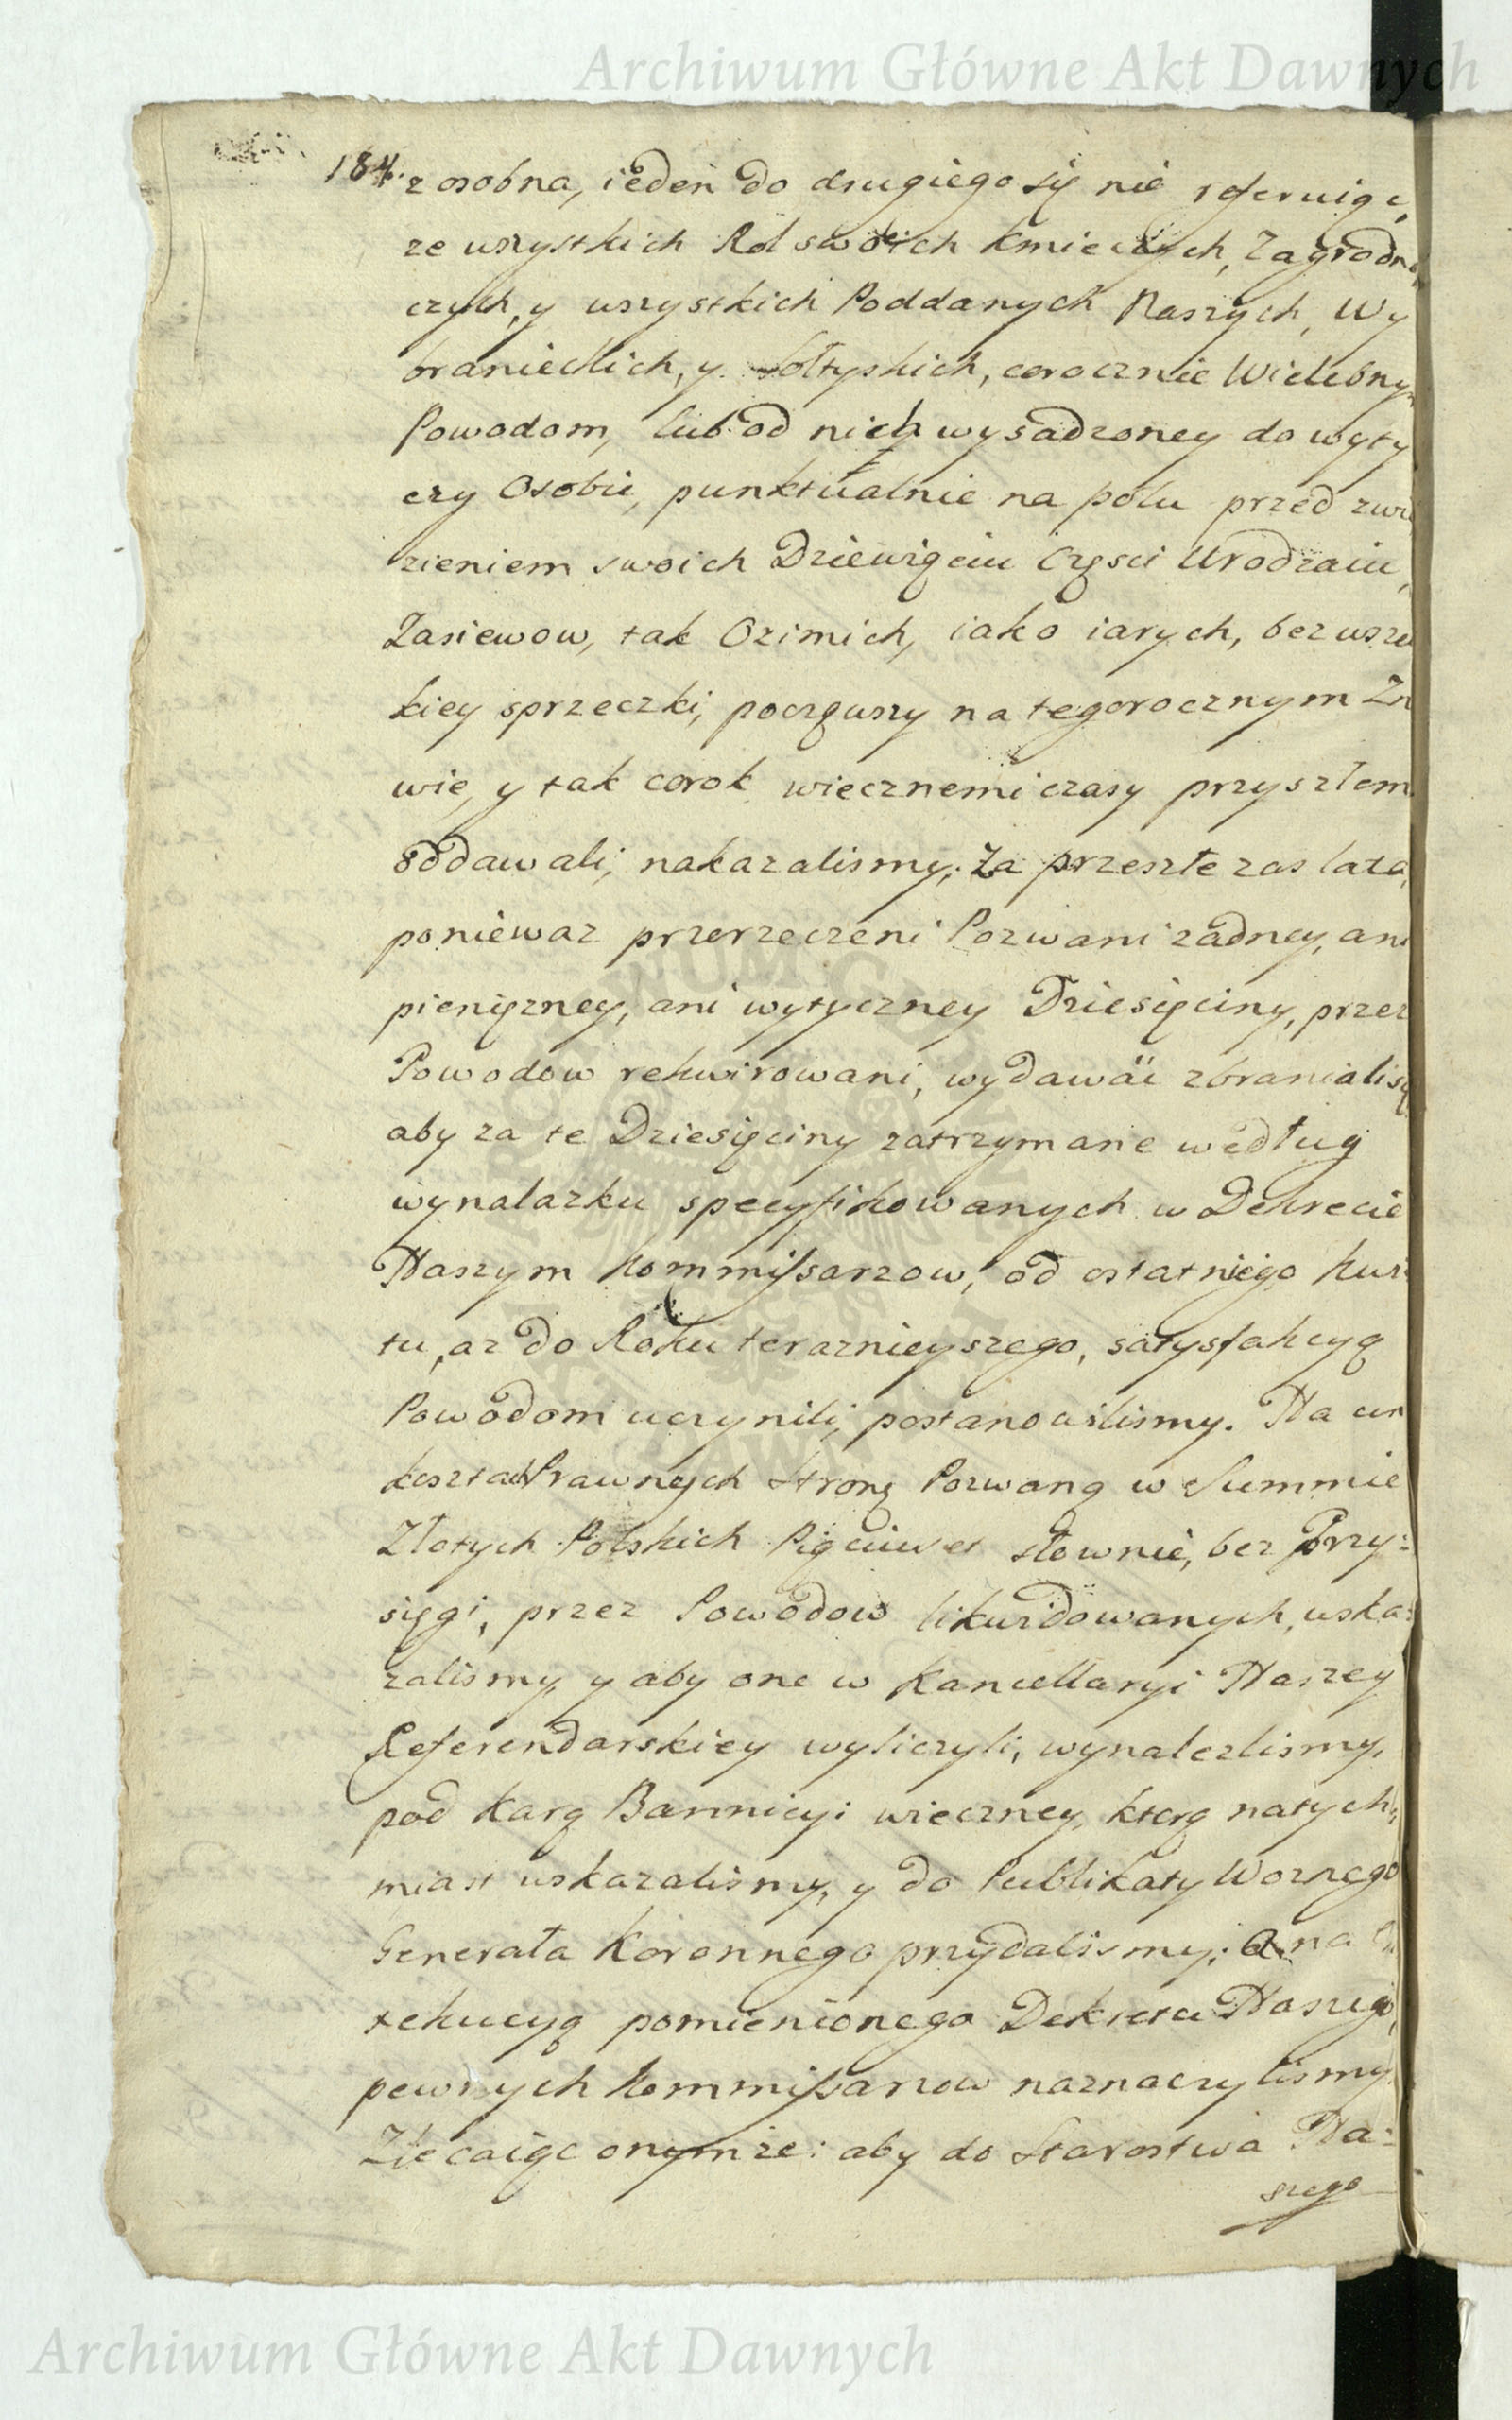 Archiwum Główne Akt Dawnych
184.
z osobna, ieden do drugiego się nie referuiąc,
ze wszystkich Rol swoich Kmiecych, Zagrodni
czych, y wszystkich Poddanych Naszych, Wy
branieckich, y Sołtyskich, corocznie Wielebny
Powodom, lub od nich wysadzoney do wyty
czy Osobie, punktualnie na polu przed zwie
zieniem swoich Dziewięciu Częsci Urodzaiu,
Zasiewow, tak Ozimich, iako iarych, bez wsze
kiey sprzeczki, począwszy na tegorocznym Zn
wie, y tak corok wiecznemi czasy przyszłem
oddawali, nakazalismy; Za przeszłe zas lata,
poniewaz przerzeczeni Pozwani zadney, ani
pienięzney, ani wytyczney Dziesięciny, przez
Powodow rekwirowani, wydawać zbranialisę
aby za te Dziesięciny zatrzymane według
wynalazku specyfikowanych w Dekrecie
Naszym Kommissarzow, od ostatniego kwi
tu, az do Roku terazniejszego, satysfakcyą
Powodom uczynili, postanowilismy. Na win
kosztach Prawnych Stronę Pozwaną w Summie
Złotych Polskich Pięciuset słownie, bez Przy:
sięgi, przez Powodow likwidowanych, wska:
zalismy, y aby one w Kancellaryi Naszey
Referendarskiey wyliczyli, wynalezlismy,
pod Karą Bannicyi wieczney, ktorą natych,
miast wskazalismy, y do Publikaty Woznego
Generała Koronnego przydalismy; a na
xekucyą pomienionego Dekretu Naszego,
pewnych Kommissarzow naznaczylismy.
Zlecaiąc onymze: aby do Starostwa Na:
szego
Archiwum Główne Akt Dawnych